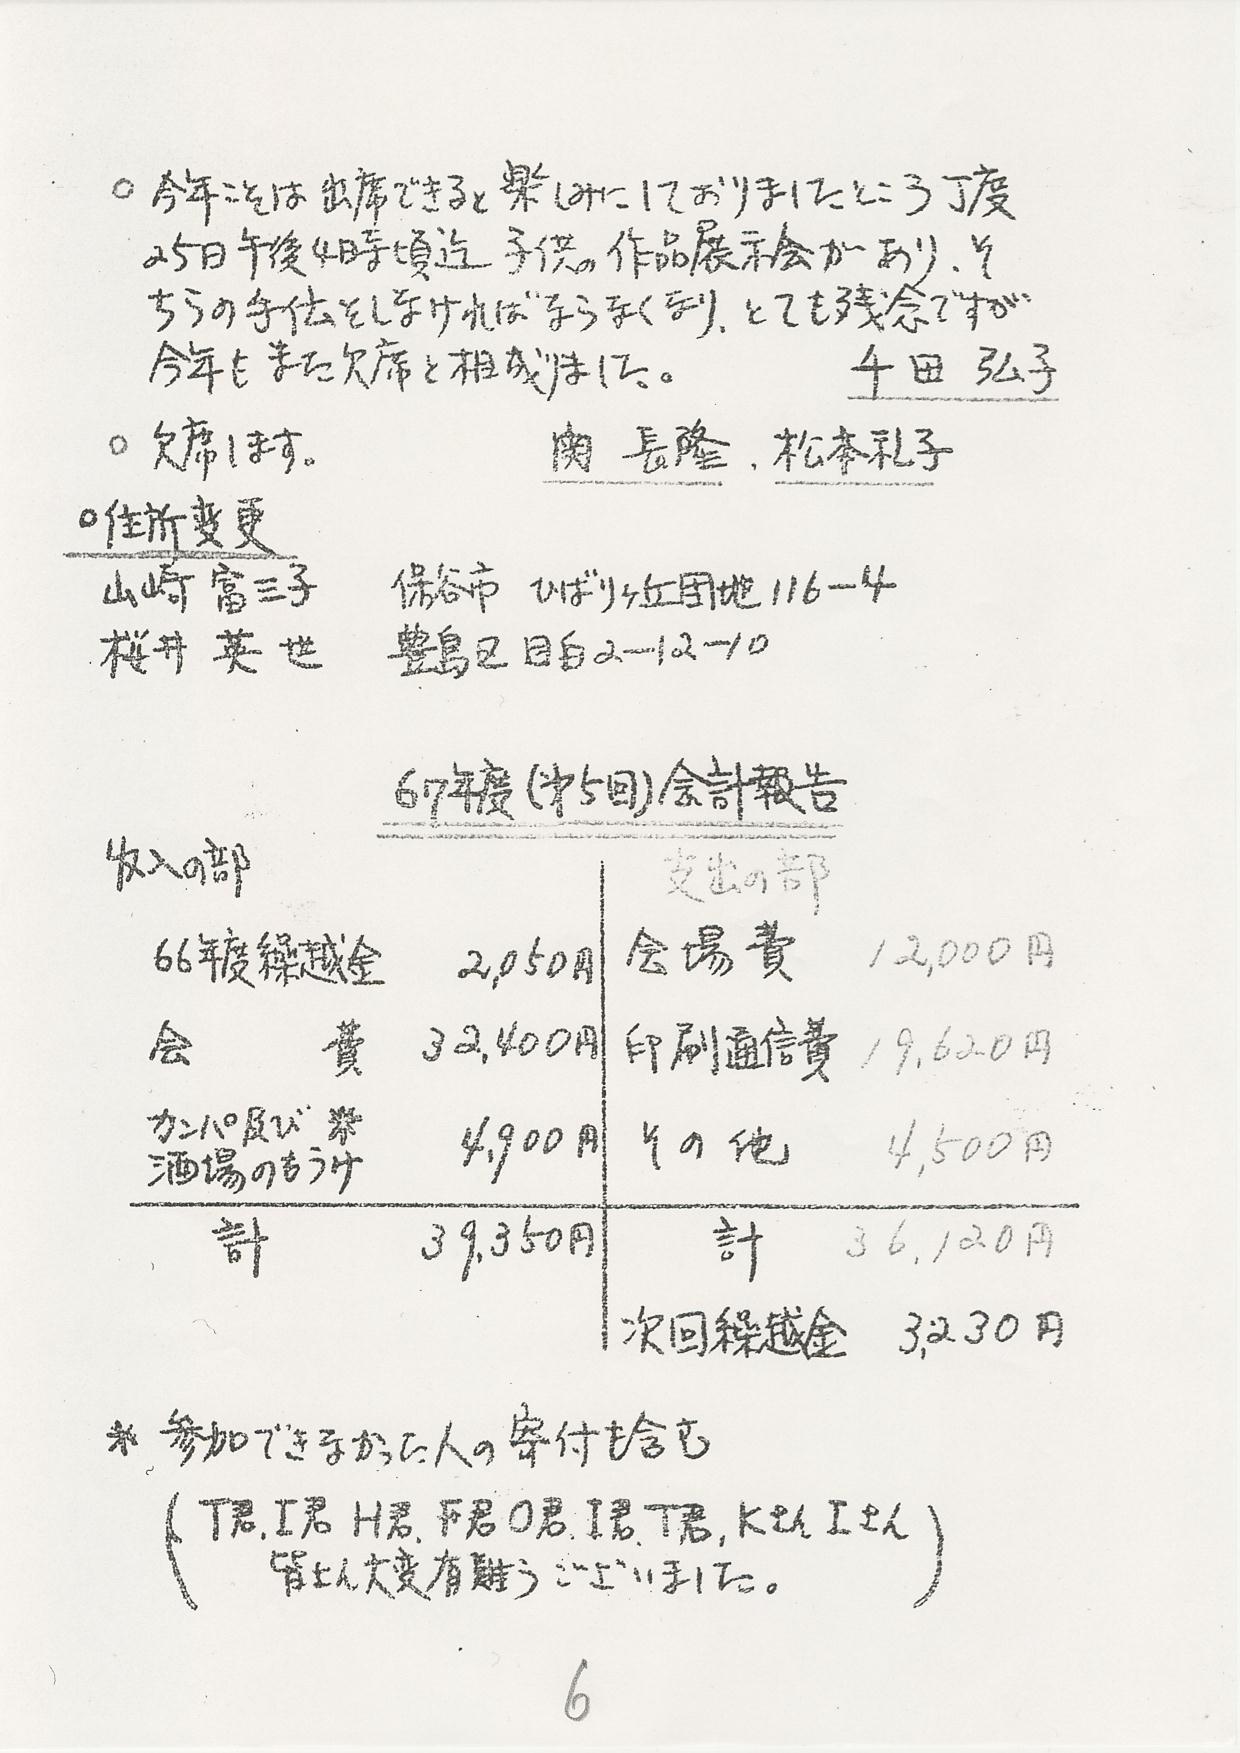 ○ 今年こそは出席できると楽しみにしておりましたところ丁度
25日午後4時頃迄 子供の作品展示会があり、そ
ちらの手伝をしなければならなくなり、とても残念ですが
今年もまた欠席と相成りました。 千田 弘子
○ 欠席します。 関 長隆、松本礼子
○住所変更
山崎 富三子 保谷市 ひばりヶ丘団地116-4
桜井 英世 豊島区 目白2-12-10
67年度(第5回)会計報告
収入の部 支出の部
66年度繰越金 2,050円 会場費 12,000円
会 費 32,400円 印刷通信費 19,620円
カンパ及び ※
酒場のもうけ 4,900円 その他 4,500円
計 39,350円 計 36,120円
次回繰越金 3,230円
※ 参加できなかった人の寄付も含む
(T君、I君 H君、F君 O君、I君、T君, Kさん Iさん
皆さん大変有難うございました。)
6